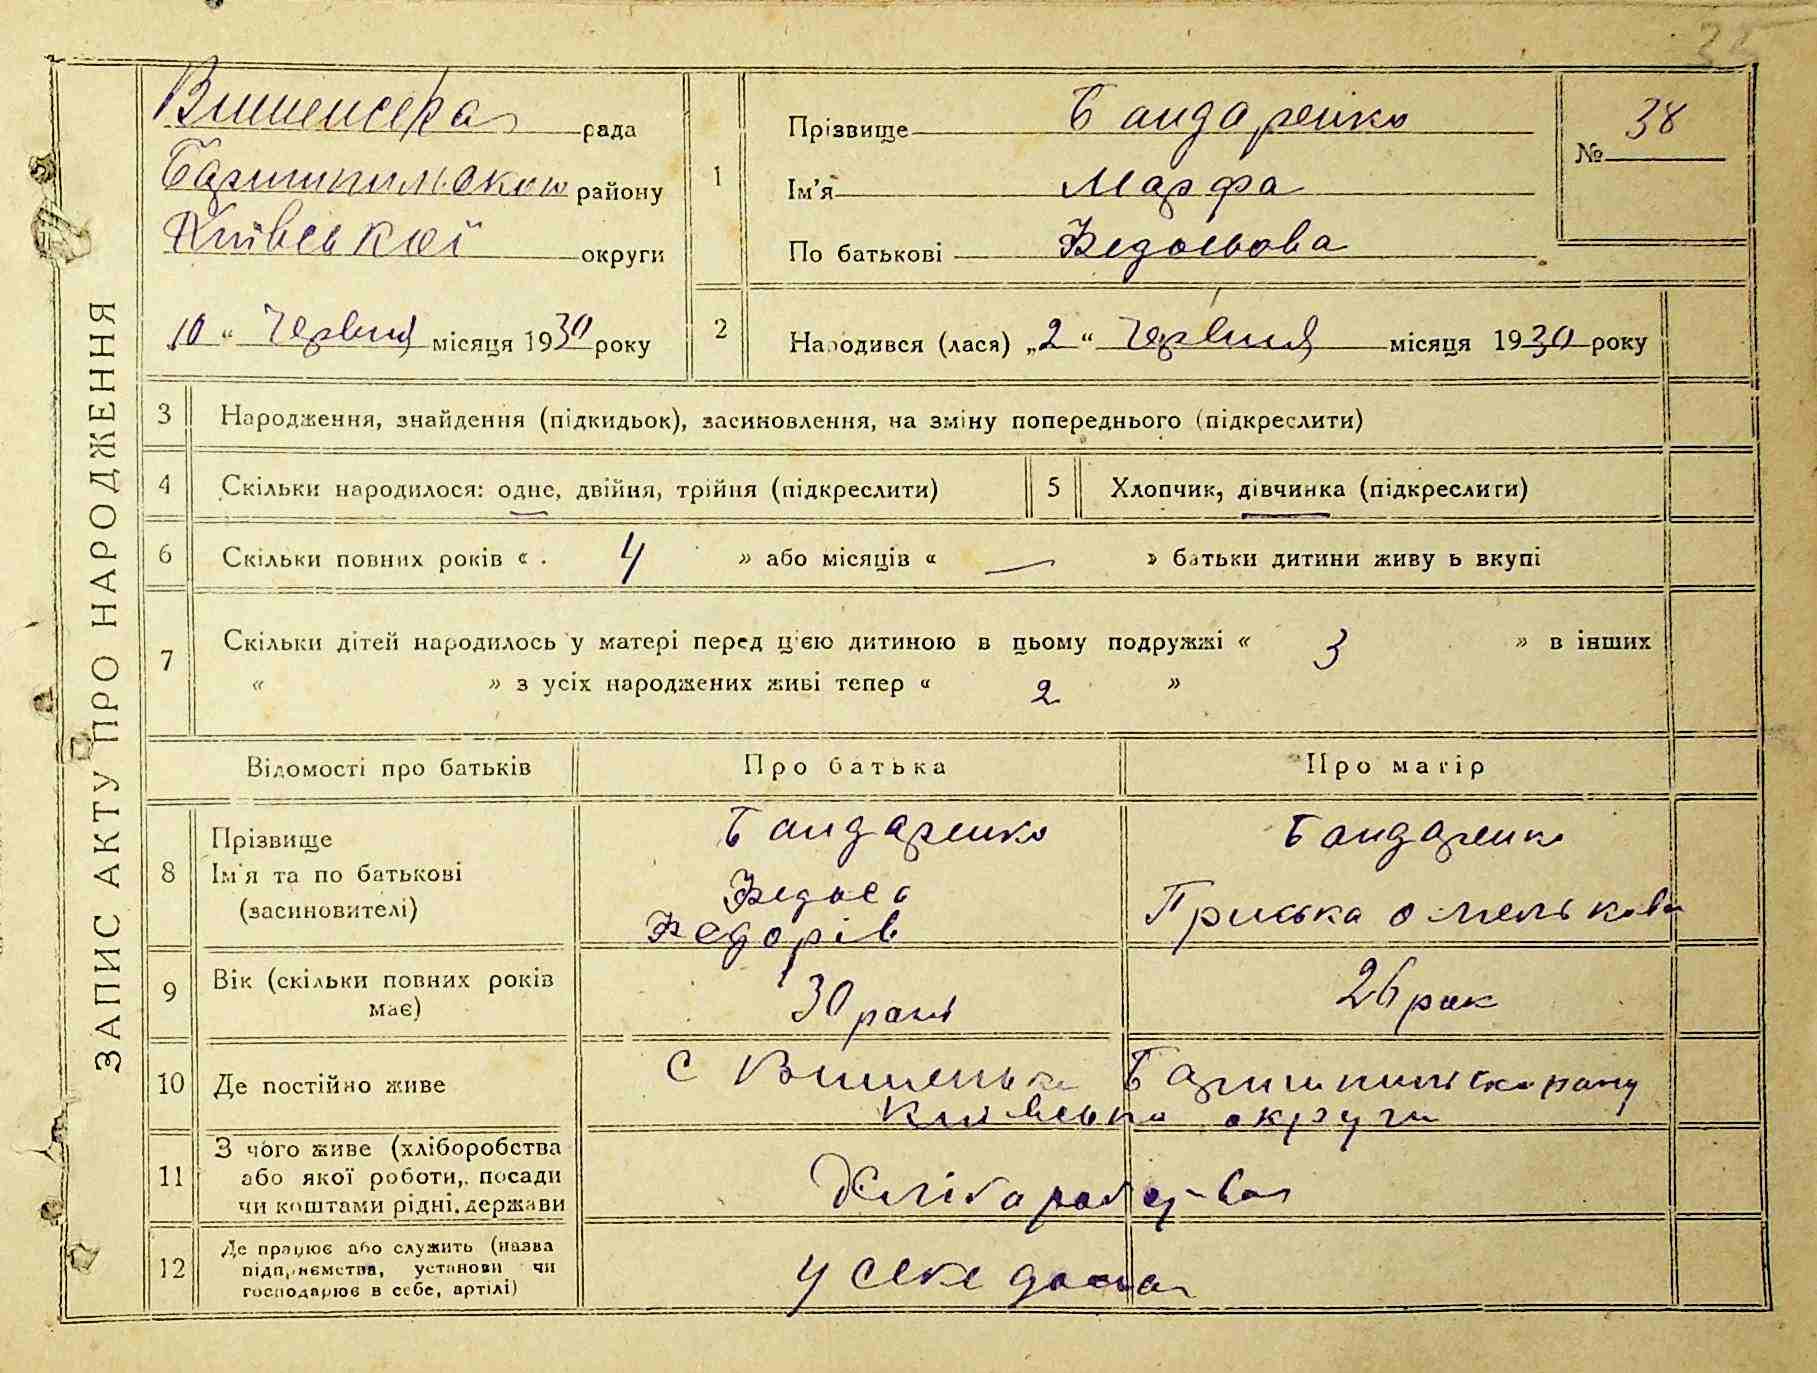 35
ЗАПИС АКТУ ПРО НАРОДЖЕННЯ
Вишенська рада
Баришпильского району
Київської округи
10 “ Червня місяця 1930 року
1
Прізвище Бандаренко
Ім'я Марфа
По батькові Федосьова
№ 38
2
Народився (лася) „2 “ Червня місяця 1930 року
3 Народження, знайдення (підкидьок), засиновлення, на зміну попереднього (підкреслити)
4 Скільки народилося: одне, двійня, трійня (підкреслити)
5 Хлопчик, дівчинка (підкреслити)
6 Скільки повних років « 4 » або місяців « — » батьки дитини живуть вкупі
7 Скільки дітей народилось у матері перед ц'єю дитиною в цьому подружжі « 3 » в інших
« » з усіх народжених живі тепер « 2 »
Відомості про батьків Про батька Про матір
8 Прізвище
Ім'я та по батькові
(засиновителі)
Бандаренко
Федось
Федорів
Бандаренко
Приська Омелькова
9 Вік (скільки повних років
має)
30 рокі
26 рок
10 Де постійно живе
С Вишеньки Баришпильско рану
Київсько округи
11 З чого живе (хліборобства
або якої роботи, посади
чи коштами рідні, держави
Хлібаробства
12 Де працює або служить (назва
підприємства, установи чи
господарює в себе, артілі)
у себе